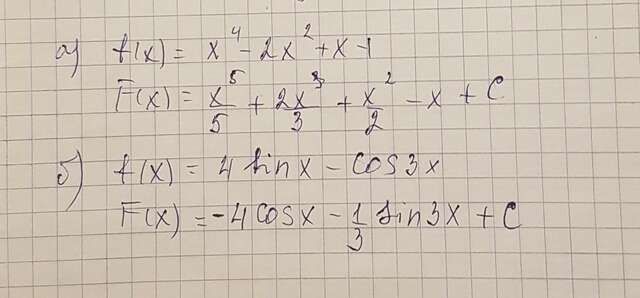 а) f(x) = x⁴ - 2x² + x - 1
F(x) = x⁵/5 + 2x³/3 + x²/2 - x + C
б) f(x) = 4 sin x - cos 3x
F(x) = -4 cos x - 1/3 sin 3x + C